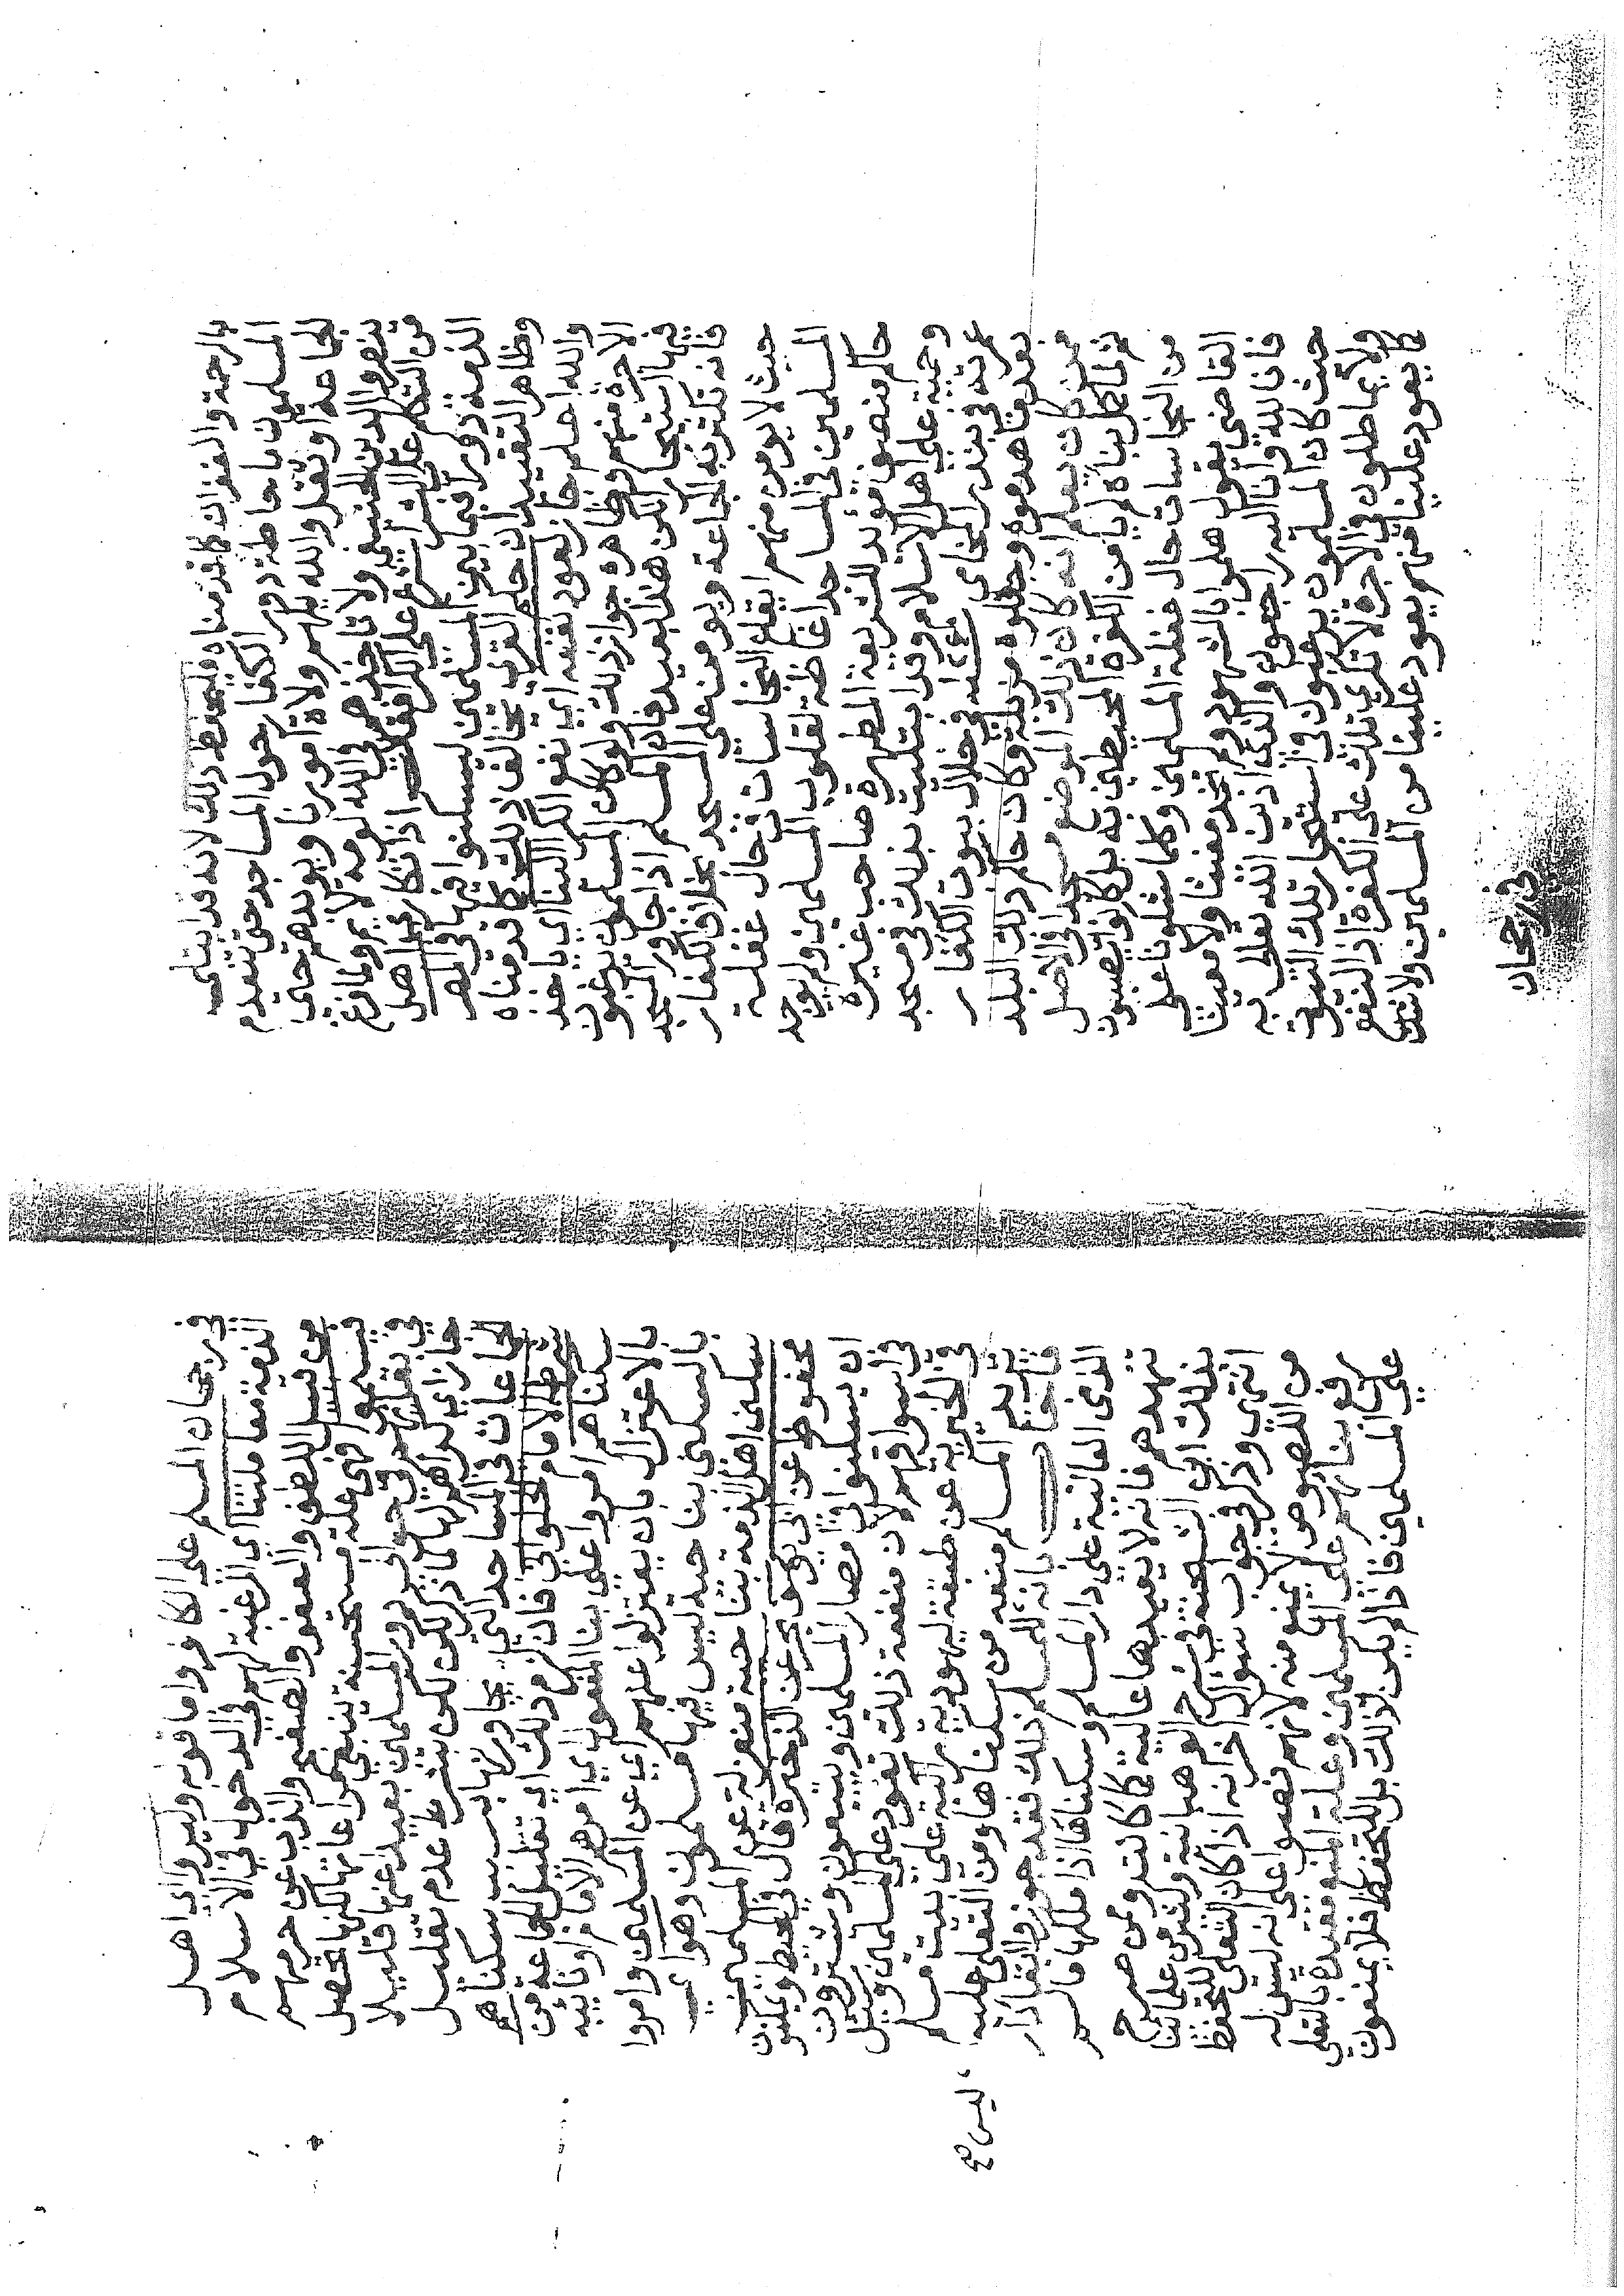 بالرحمة والغفران كما قدمناه فليحفظ ذلك لانه قد ابتلى
المسلمون باحاطة دور الكفار حول المساجد حتى تنعدم
الجماعة او تقل والله يلهم ولاة امورنا ويؤيدهم حتى
ينصروا الدين الحنيفي ولا تاخذهم في الله لومة لايم وما فرغ
من التكلم على الشراء شرع على الكرا فقال اذا تكارى اهل
الذمة دورا فيما بين المسلمين ليسكنوا فيها في المصر
وظاهر التقييد ان حكم القرى يخالف ذلك كما قدمناه
والله اعلم جاز لعود نفعه اي نفع الكرا الينا اي باخذ
الاجرة منهم وظاهره جواز ذلك ولو كان المسلمون يرغبون
فيها استيجارا لكن هذا بعيد فان المسلم اذا جاور المسجد
فانه تكثر به الجماعة ويومن على المسجد بخلاف الكفار
حيث لا يومن منهم ايقاع النجاسات في حال غفلة
المسلمين في المساجد اغاظة لقلوب المسلمين ولم يوجد
حاكم منصف مؤيد للشريعة المطهرة صاحب غيرة
وحمية على اهل الاسلام وقد ابتليت بذلك في مسجد
عمرته في بندر المخا في خلال بيوت الكفار
بعد ما هدموه وجعلوه مزبلة وكان حاكم ذلك البلد
ممن كان يعلم انه كان ذلك الموضع مسجدا في الاصل
ثم لما عمرناه لم يامن الكفرة المحيطين به بل كانوا يصبون
من النجاسات حال غفلة المسلمين وكلما شكونا على
القاضي يقول هلموا بالشهود ولم نجد مغيثا ولا معينا
فانا لله وانا اليه راجعون والذي اذن الله تعالى به
حيث كان المسلمون يرغبون في استيجار تلك البيوت
ولا يماطلون في الاجرة لا تكرى تلك على الكفرة اذ النفع
كما يعود علينا منهم يعود علينا من المسلمين ولا شك
في رجحان
في رجحان المسلم على الكافر واما قوله وليروا اي اهل
الذمة معاملتنا اي الرغبة لهم في الدخول في الاسلام
من قبيل اللطف والعفو والصفح والذب عن حرمهم
فيسلموا فهي علة مستحسنة ينبغي مراعاتها لكنها تحصل
في بقائهم في جوانب دور المسلمين بعيدا عنها قليلا
جاز اي كراهم لها لما ذكر لكن بشرط عدم تقليل
الجماعات في المساجد التي يجاورنها بسبب سكناهم
شرطه الامام الحلواني فان لزم ذلك اي تقليل الجماعة من
سكناهم امروا على بنا المفعول اي امرهم الامام او نائبه
بالاعتزال بان يعتزلوا عنهم اي عن المسلمين وامروا
بالسكنى بناحية ليس فيها مسلمون وهو اي
سكنى اهل الذمة بناحية منعزلة عن المسلمين
محفوظ عن ابي يوسف بحر عن الذخيرة قال في المحيط ويمكنون
ان يسكنوا في مصار المسلمين ويبيعون ويشترون
في اسواقهم لان منفعة ذلك تعود على المسلمين وسئل
في الخيرية عن طبقة ليهودية راكبة على بيت مسلم
يريد المسلم منعه من سكناها ومن التعلي عليه
فاجاب بانه للمسلم ذلك فقد جوزوا ابقا دار
ليس صح
الذمي العالية على دار المسلم وسكناها اذا ملكها ما لم
تنهدم فانه لا يعيدها عالية كما كانت وممن صرح
بذلك ابن الشحنة في شرح الوهبانية وكثير من علمائنا
انتهى وذكر في جواب سوال اخر انه اذا كان التعلي للتحفظ
من اللصوص لا يمنع منه لانهم نصوا على انه ليس له
رفع بنائهم على المسلمين وعلة المنع مقيدة بالتعلي
على المسلمين فاذا لم يكن لذلك بل للتحفظ فلا يمنعون